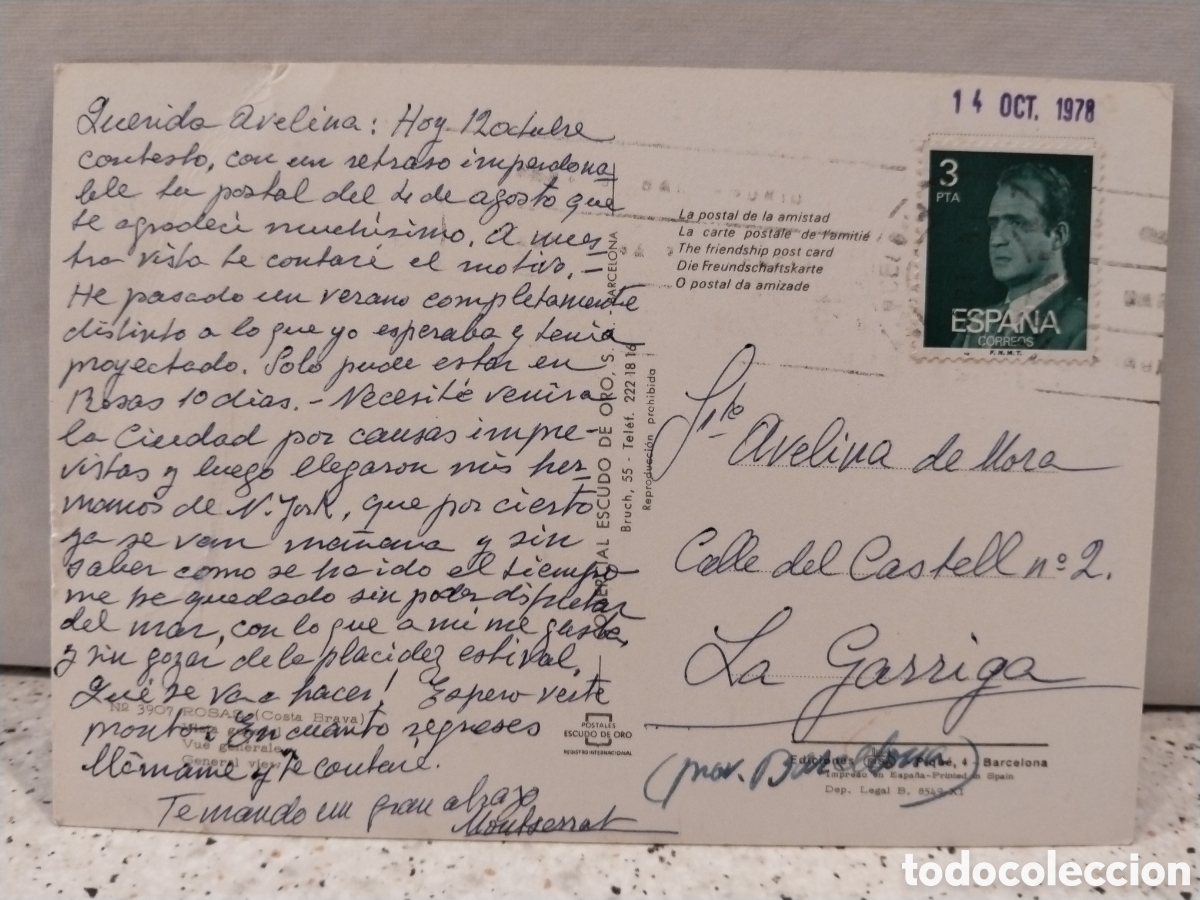 Querida Avelina: Hoy 12 octubre
contesto, con un retraso imperdona-
ble tu postal del 4 de agosto que
te agradeci muchísimo. A nues-
tra vista te contaré el motivo.-
He pasado un verano completamente
distinto a lo que yo esperaba y tenia
proyectado. Solo pude estar en
Rosas 10 dias.- Necesité venir a
la Ciudad por causas impre-
vistas y luego llegaron mis her-
manos de N. York, que por cierto
ya se van mañana y sin
saber como se ha ido el tiempo
me he quedado sin poder disfrutar
del mar, con lo que a mi me gusta,
y sin gozar de la placidez estival.
Qué se va a hacer! Espero verte
pronto. En cuanto regreses
llámame y te contaré.
Te mando un gran abrazo
Montserrat
Nº 3907 ROSAS (Costa Brava)
Vue generale
General view
ESCUDO DE ORO, S. BARCELONA
Bruch, 55 - Teléf. 222 18 16
Reproducción prohibida
POSTALES
ESCUDO DE ORO
REGISTRO INTERNACIONAL
14 OCT. 1978
3
PTA
ESPAÑA
CORREOS
F.N.M.T.
La postal de la amistad
La carte postale de l'amitié
The friendship post card
Die Freundschaftskarte
O postal da amizade
Srta Avelina de Mora
Calle del Castell nº 2.
La Garriga
(prov. Barcelona)
Ediciones Piqué, 4 - Barcelona
Impreso en España-Printed in Spain
Dep. Legal B. 8549-XI
todocoleccion